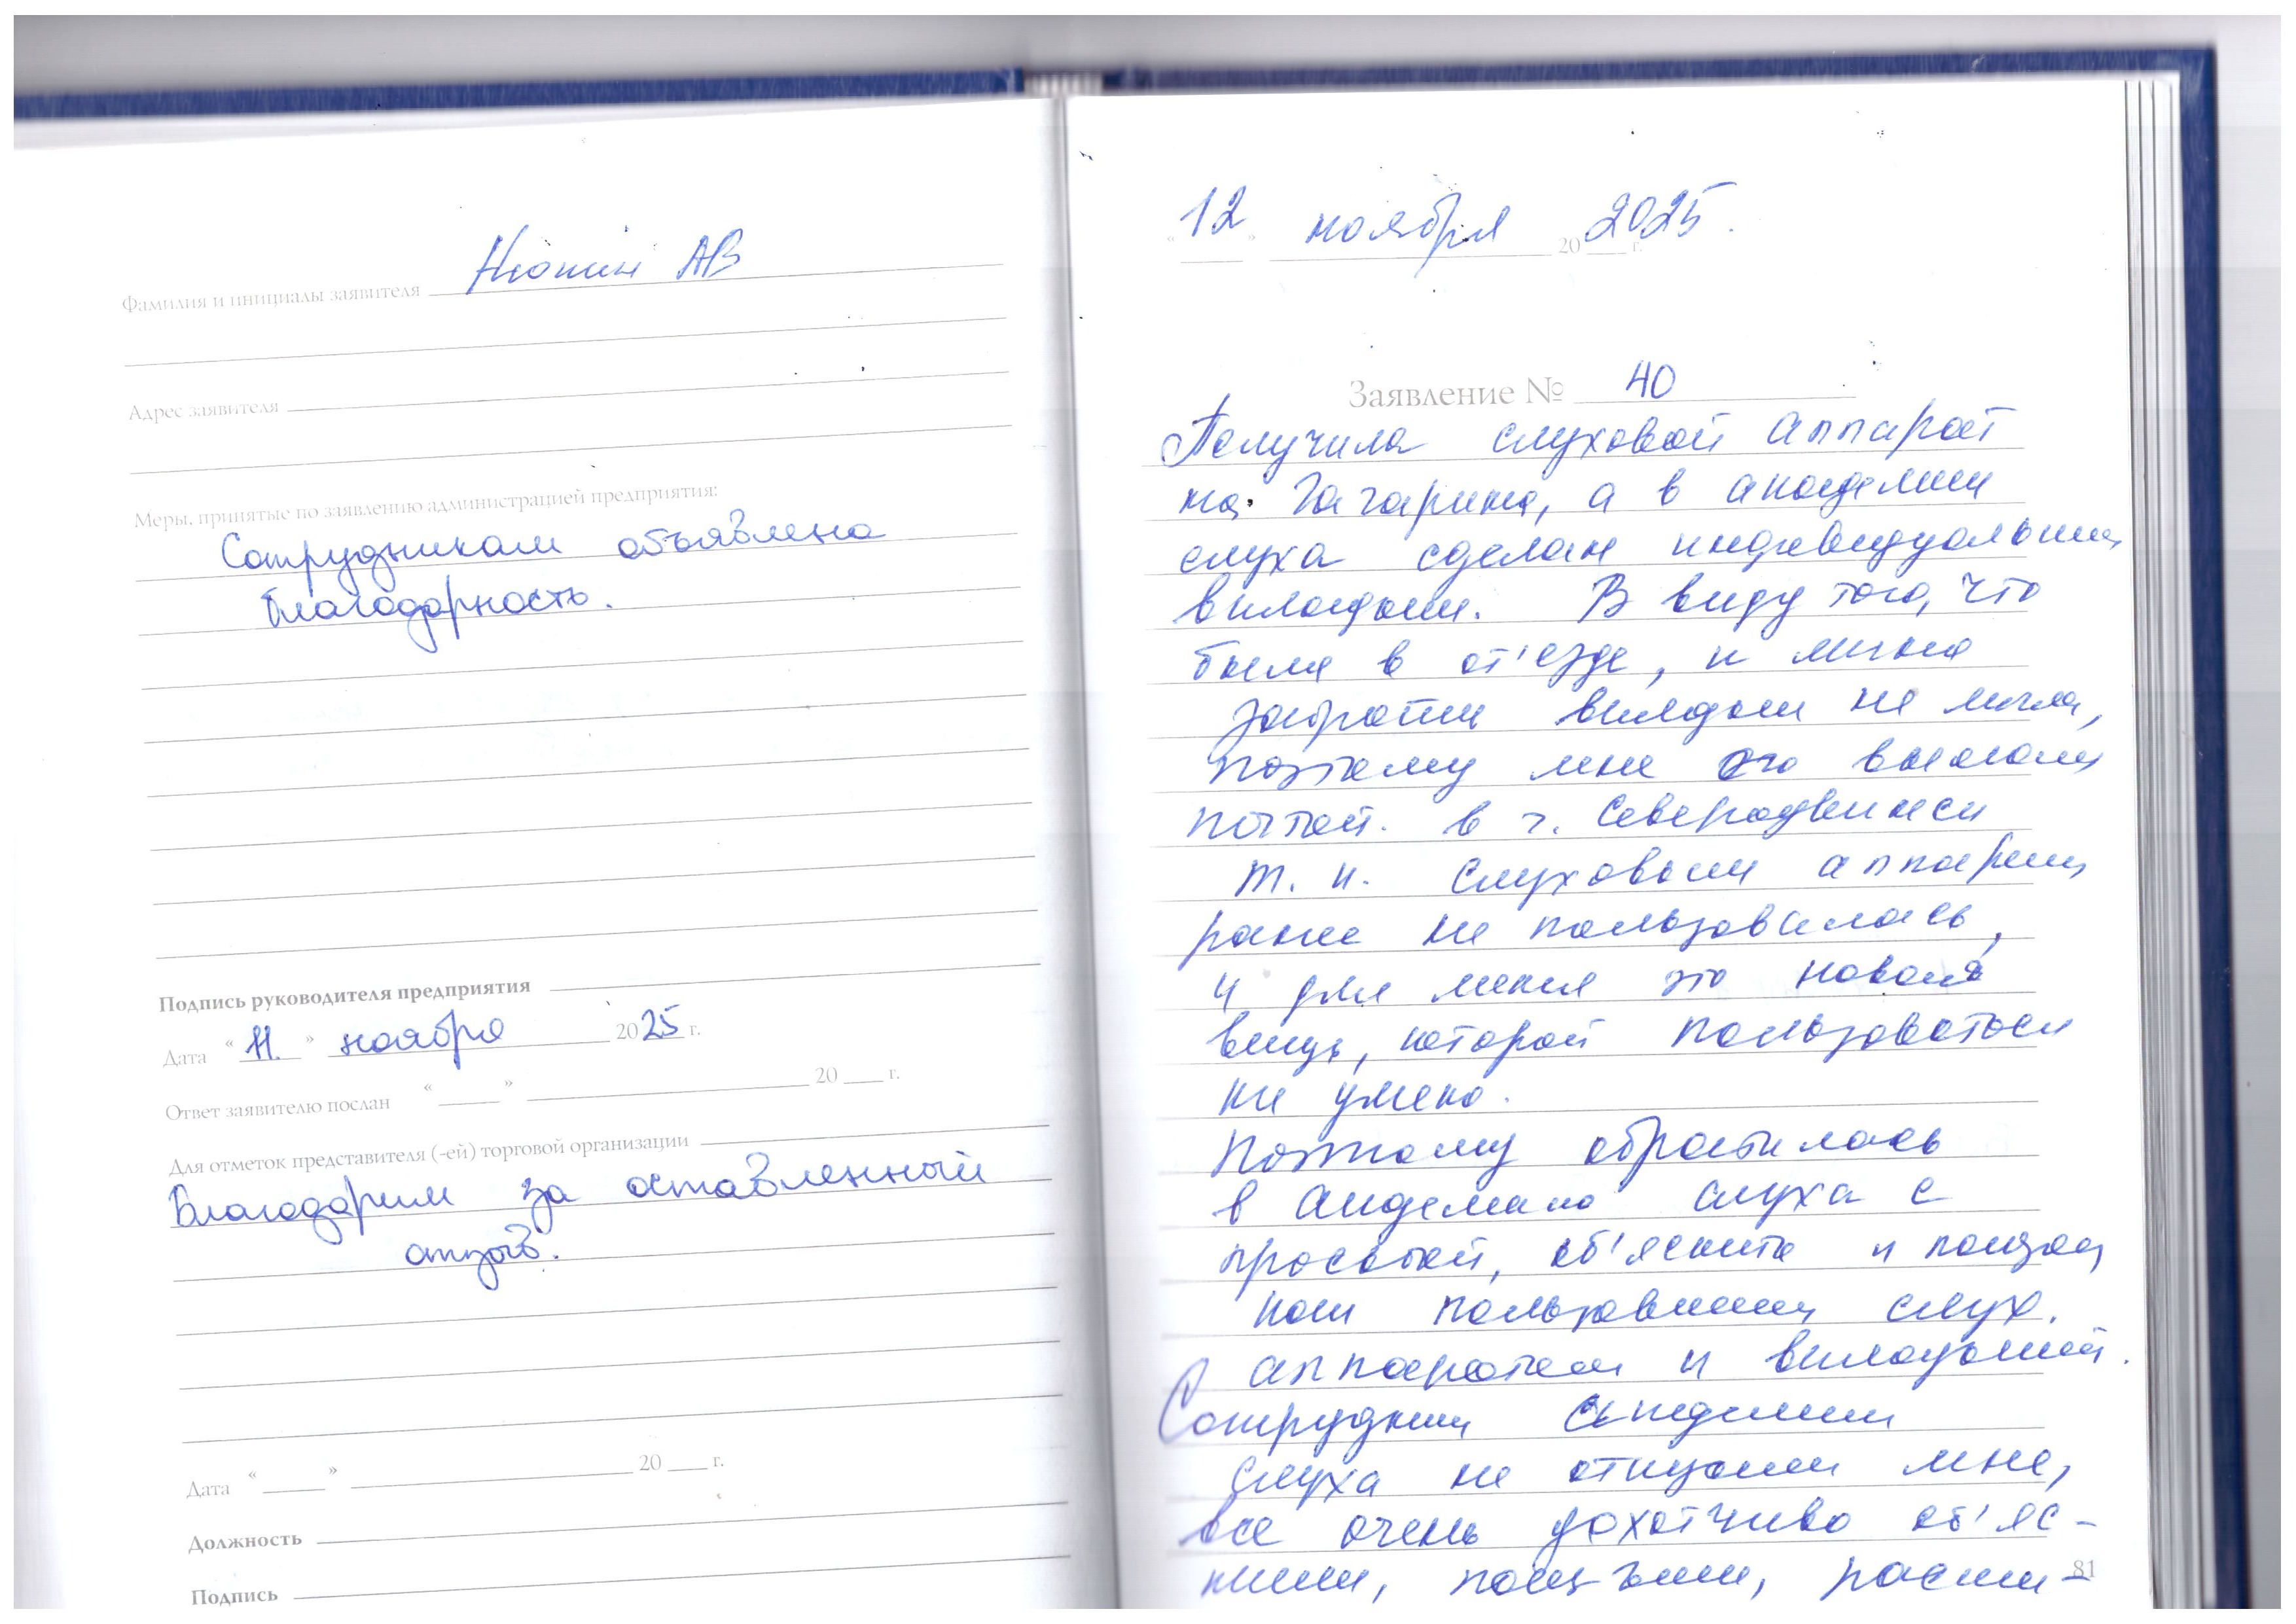 Фамилия и инициалы заявителя Нюнин АВ
Адрес заявителя
Меры, принятые по заявлению администрацией предприятия:
Сотрудникам объявлена
благодарность.
Подпись руководителя предприятия
Дата "11." ноября 2025 г.
Ответ заявителю послан " " 20 г.
Для отметок представителя (-ей) торговой организации
Благодарим за оставленный
отзыв.
Дата « » 20 г.
Должность
Подпись
"12" ноября 20 2025. г.
Заявление № 40
Получила слуховой аппарат
на Гагарина, а в академии
слуха сделан индивидуальный
вкладыш. В виду того, что
была в от'езде, и лично
забрать вкладыш не могла,
поэтому мне его выслали
почтой. в г. Северодвинск
т. к. слуховым аппаратом
ранее не пользовалась,
и для меня это новая
вещь, которой пользоваться
не умею.
Поэтому обратилась
в академию слуха с
просьбой, об'яснить и показать
как пользоваться слух.
аппаратом и вкладышем.
Сотрудники академии
слуха не отказали мне,
все очень доходчиво об'яс-
нили, показали, распи-
81